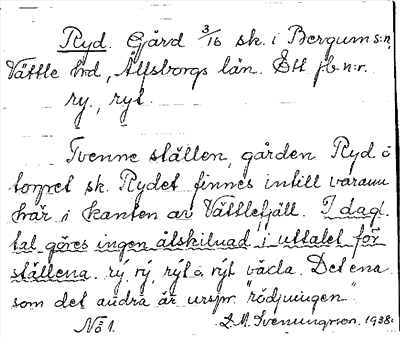 Ryd. Gård 3/16 sk. i Bergums s:n,
Vättle hd, Älfsborgs län. Ett jb.n:r.
ry., ryt.
Tvenne ställen, gården Ryd o
torpet sk. Rydet finnes intill varann
här i kanten av Vättlefjäll. I dagl.
tal göres ingen åtskilnad i uttalet för
ställena. rý, rý, rýt o. rýt växla. Det ena
som det andra är urspr. "rödjningen".
No 1. D. M. Svenungsson. 1938.